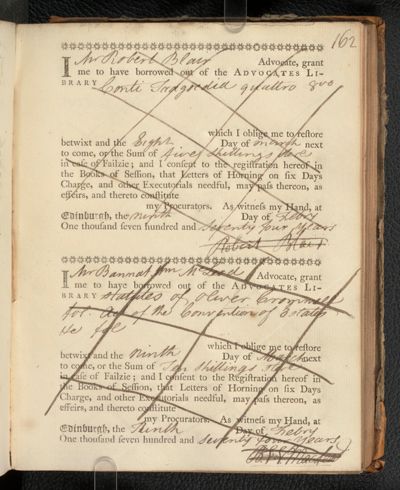 162
I Mr Robert Blair Advocate, grant
me to have borrowed out of the ADVOCATES LI-
BRARY Conti Tragoedid quattro 8vo
which I oblige me to restore
betwixt and the Eight Day of march next
to come, or the Sum of five shillings
in case of Failzie; and I consent to the registration hereof in
the Books of Session, that Letters of Horning on six Days
Charge, and other Executorials needful, may pass thereon, as
effeirs, and thereto constitute
my Procurators. As witness my Hand, at
Edinburgh, the ninth Day of Febry
One thousand seven hundred and seventy four years
Robert Blair
I Mr Bannatyne McLeod Advocate, grant
me to have borrowed out of the ADVOCATES LI-
BRARY statutes of Oliver Cromwell
fol. Act of the Convention of Estates
&c fol
which I oblige me to restore
betwixt and the ninth Day of March next
to come, or the Sum of Ten shillings
in case of Failzie; and I consent to the Registration hereof in
the Books of Session, that Letters of Horning on six Days
Charge, and other Executorials needful, may pass thereon, as
effeirs, and thereto constitute
my Procurators. As witness my Hand, at
Edinburgh, the Ninth Day of Febry
One thousand seven hundred and seventy four years